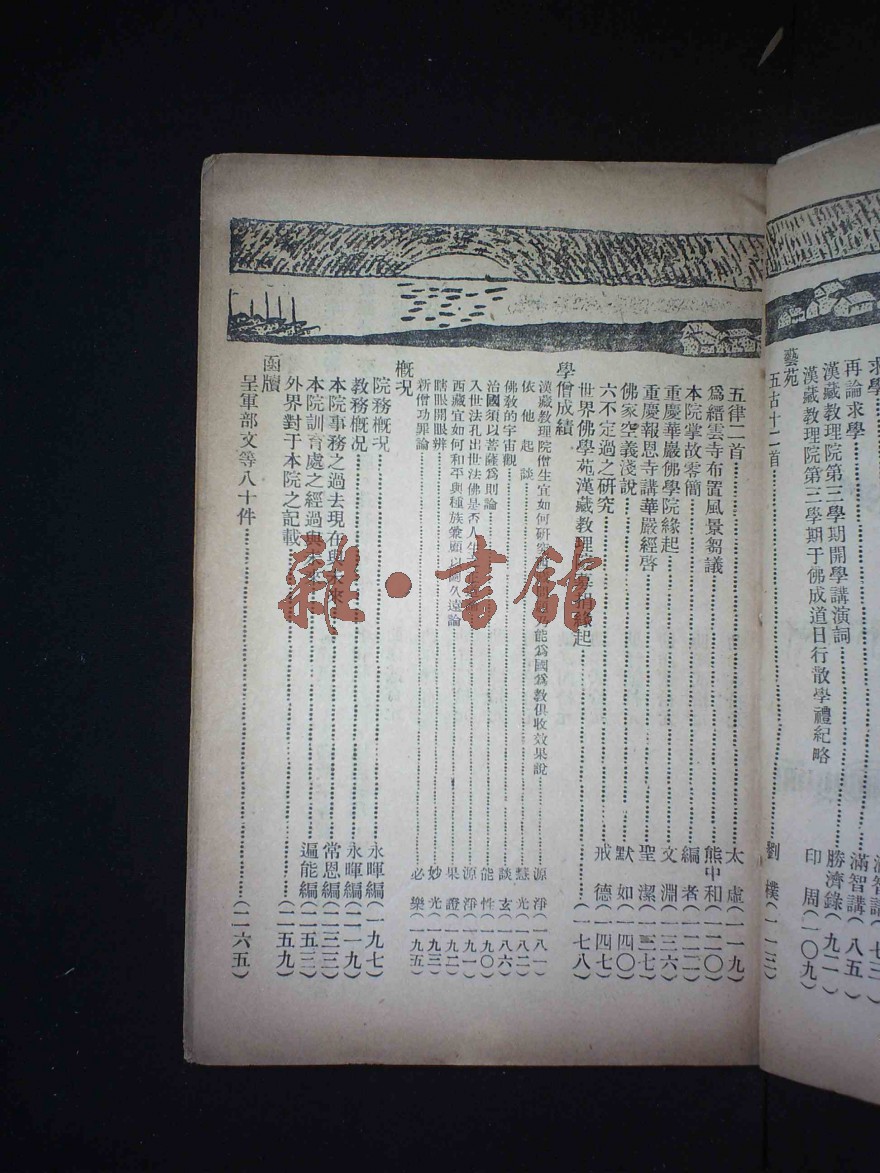 求學
滿智講(七三)
再論求學
滿智講(八五)
漢藏教理院第三學期開學講演詞
勝濟錄(九二)
漢藏教理院第三學期于佛成道日行散學禮紀略
印周(一〇九)
藝苑
五古十二首
劉樸(一一三)
五律二首
太虛(一一九)
為縉雲寺布置風景芻議
熊中和(一二〇)
本院掌故零簡
編者(一二二)
重慶華嚴佛學院緣起
文淵(一三六)
重慶報恩寺講華嚴經啓
聖潔(一三七)
佛家空義淺說
默如(一四〇)
六不定過之研究
戒德(一四七)
世界佛學苑漢藏教理院募捐緣起
(一七八)
學僧成績
漢藏教理院僧生宜如何研究 能為國為教俱收效果說
源淨(一八一)
依他起談
慧光(一八二)
佛教的宇宙觀
談玄(一八六)
治國須以菩薩為則論
能性(一九〇)
入世法孔出世法佛是否人生
源淨(一九一)
西藏宜如何和平與種族兼顧以圖久遠論
果證(一九二)
瞎眼開眼辨
妙光(一九三)
新僧功罪論
必樂(一九五)
概况
院務概况
永暉編(一九七)
教務概况
永暉編(二一九)
本院事務之過去現在與未來
常恩編(二三三)
本院訓育處之經過與
遍能編(二五三)
外界對于本院之記載
(二五九)
函牘
呈軍部文等八十件
(二六五)
雜·書館